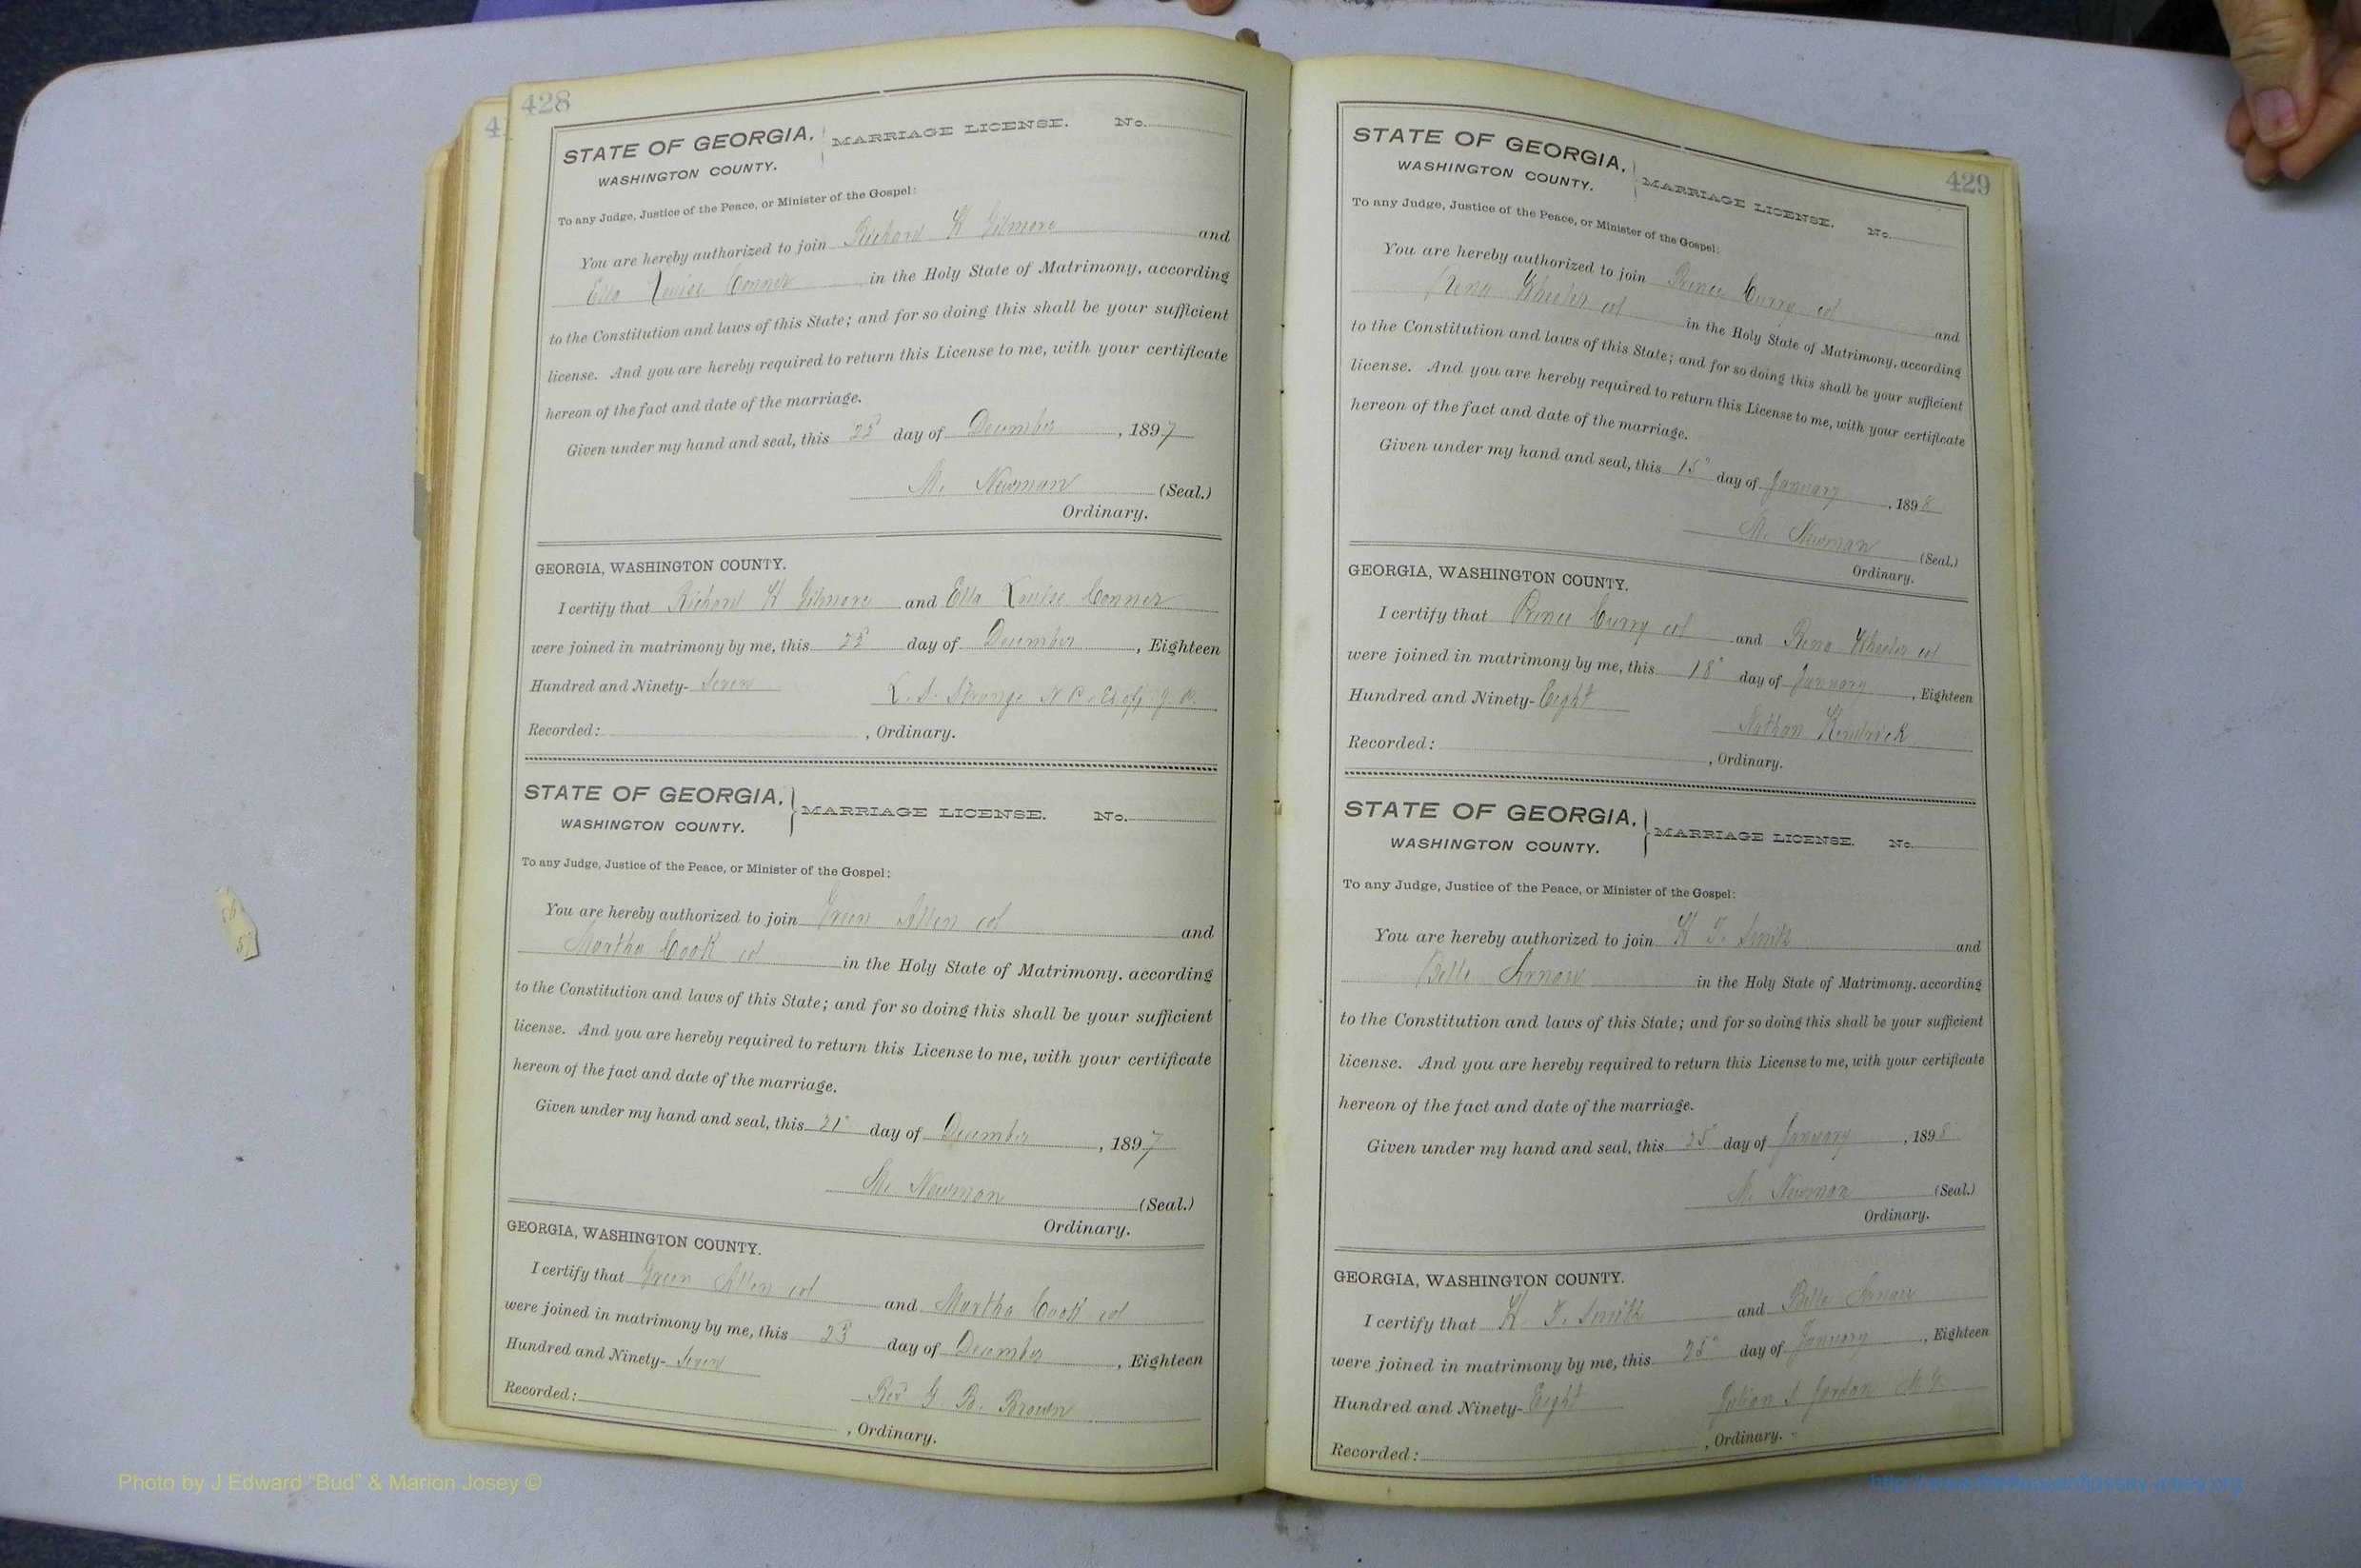 428
STATE OF GEORGIA, MARRIAGE LICENSE. No.
WASHINGTON COUNTY.
To any Judge, Justice of the Peace, or Minister of the Gospel:
You are hereby authorized to join Richard H Gilmore and
Ella Louise Conner in the Holy State of Matrimony, according
to the Constitution and laws of this State; and for so doing this shall be your sufficient
license. And you are hereby required to return this License to me, with your certificate
hereon of the fact and date of the marriage.
Given under my hand and seal, this day of December, 1897
M. Newman (Seal.)
Ordinary.
GEORGIA, WASHINGTON COUNTY.
I certify that Richard H Gilmore and Ella Louise Conner
were joined in matrimony by me, this 23 day of December, Eighteen
Hundred and Ninety-Seven
L. S. Strange N P.
Recorded: , Ordinary.
STATE OF GEORGIA, MARRIAGE LICENSE. No.
WASHINGTON COUNTY.
To any Judge, Justice of the Peace, or Minister of the Gospel:
You are hereby authorized to join Green Allen col and
Martha Cook col in the Holy State of Matrimony. according
to the Constitution and laws of this State; and for so doing this shall be your sufficient
license. And you are hereby required to return this License to me, with your certificate
hereon of the fact and date of the marriage.
Given under my hand and seal, this 21" day of December, 1897
M. Newman (Seal.)
Ordinary.
GEORGIA, WASHINGTON COUNTY.
I certify that Green Allen col and Martha Cook col
were joined in matrimony by me, this 23 day of December, Eighteen
Hundred and Ninety-Seven
Rev G. B. Brown
Recorded: , Ordinary.
429
STATE OF GEORGIA, MARRIAGE LICENSE. No.
WASHINGTON COUNTY.
To any Judge, Justice of the Peace, or Minister of the Gospel:
You are hereby authorized to join Prince Curry col and
Rena Wheeler col in the Holy State of Matrimony, according
to the Constitution and laws of this State; and for so doing this shall be your sufficient
license. And you are hereby required to return this License to me, with your certificate
hereon of the fact and date of the marriage.
Given under my hand and seal, this 15" day of January, 1898
M. Newman (Seal.)
Ordinary.
GEORGIA, WASHINGTON COUNTY.
I certify that Prince Curry col and Rena Wheeler col
were joined in matrimony by me, this 18" day of January, Eighteen
Hundred and Ninety-Eight
Nathan Kendrick
Recorded: , Ordinary.
STATE OF GEORGIA, MARRIAGE LICENSE. No.
WASHINGTON COUNTY.
To any Judge, Justice of the Peace, or Minister of the Gospel:
You are hereby authorized to join H T. Smith and
Belle Arnow in the Holy State of Matrimony. according
to the Constitution and laws of this State; and for so doing this shall be your sufficient
license. And you are hereby required to return this License to me, with your certificate
hereon of the fact and date of the marriage.
Given under my hand and seal, this 25" day of January, 1898
M. Newman (Seal.)
Ordinary.
GEORGIA, WASHINGTON COUNTY.
I certify that H. T. Smith and Belle Arnow
were joined in matrimony by me, this 25" day of January, Eighteen
Hundred and Ninety-Eight
Julian S Jordan
Recorded: , Ordinary.
Photo by J Edward "Bud" & Marion Josey ©